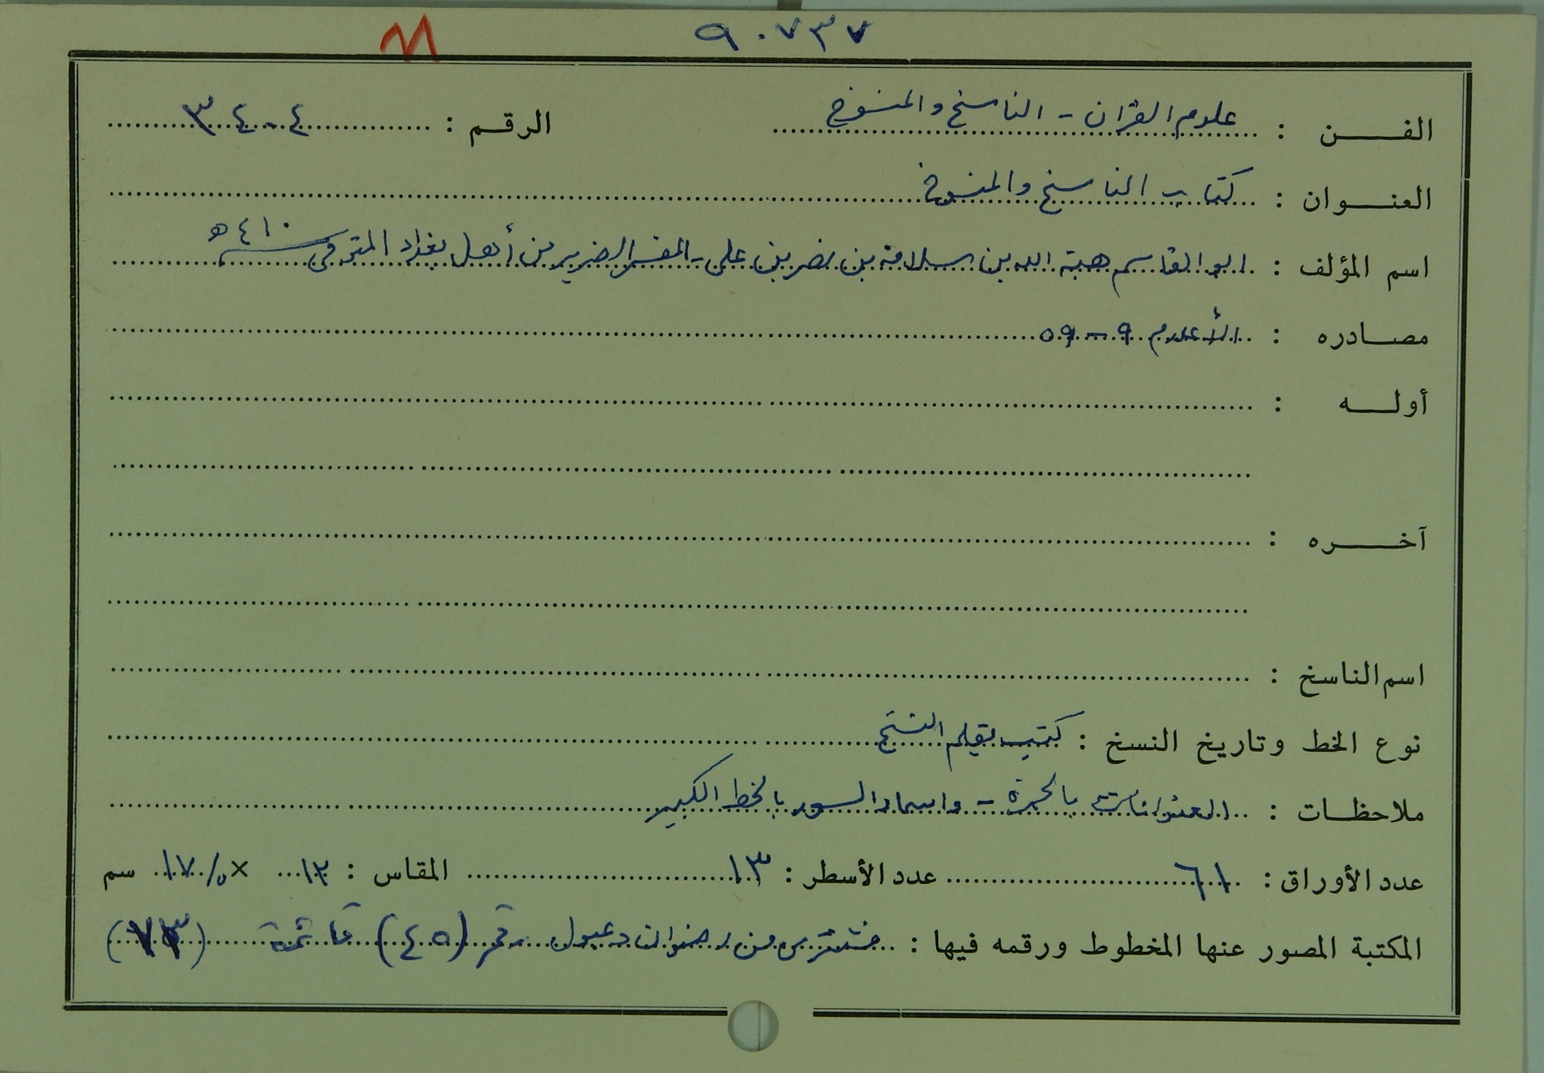 ٩٠٧٣٧
الفن : علوم القرآن - الناسخ والمنسوخ الرقم : ٣٤٠٤
العنوان : كتاب الناسخ والمنسوخ
اسم المؤلف : ابو القاسم هبة الله بن سلامة بن نصر بن علي - المفسر الضرير من أهل بغداد المتوفى سنة ٤١٠ هـ
مصادره : الأعلام ٩ - ٥٩
أوله :
آخره :
اسم الناسخ :
نوع الخط وتاريخ النسخ : كتب بقلم النسخ
ملاحظات : العنوانات بالحمرة - واسماء السور بالخط الكبير
عدد الأوراق : ٦١ عدد الأسطر : ١٣ المقاس : ١٢ × ١٧/٥ سم
المكتبة المصور عنها المخطوط ورقمه فيها : مشترى من رضوان دعبول رقم (٤٥) قائمة (٧٣)